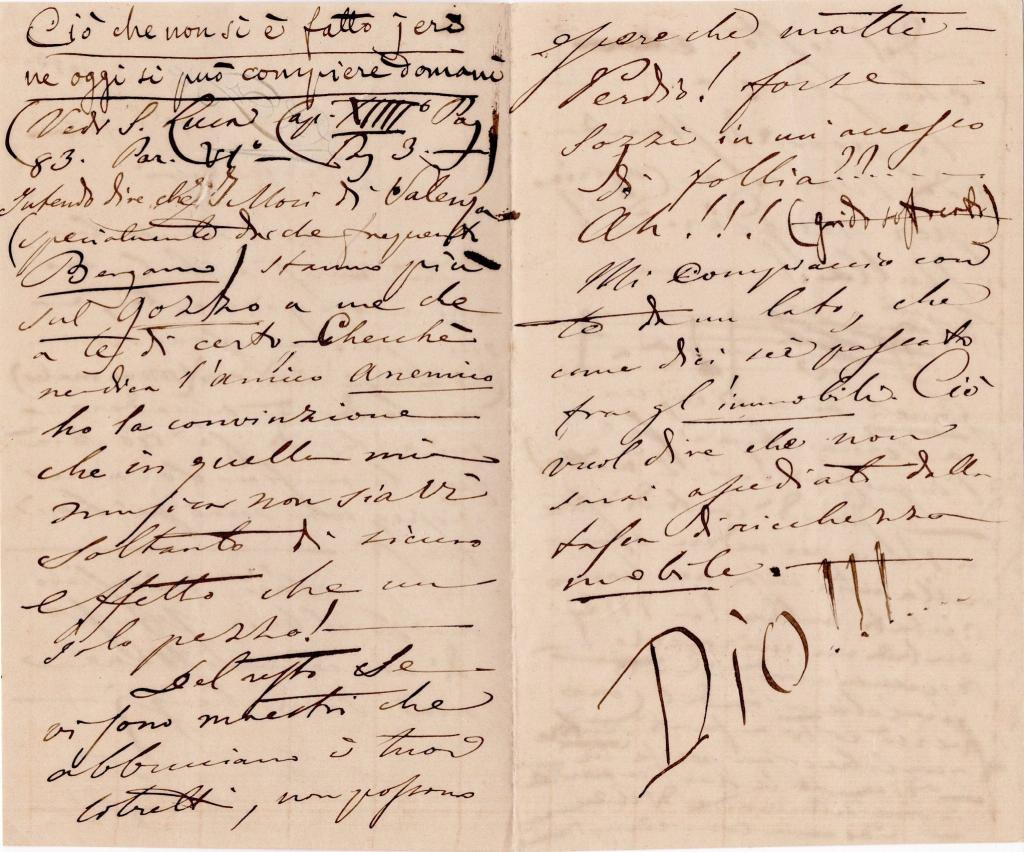 Ciò che non si è fatto jeri
ne oggi si può compiere domani
(Vedi S. Luca Cap. XIIII° Pa
83. Par. VI° — Pag 3. —)
Intendo dire che I Mori di Valenza
(specialmente da che frequenti
Bergamo) stanno più
sul gozzo a me che
a te di certo — Checchè
ne dica l'amico anemico
ho la convinzione
che in quella mia
musica non siavi
soltanto di sicuro
effetto che un
solo pezzo! —
Del resto se
vi sono maestri che
abbruciano i tuoi
libretti, non possono
essere che matti —
Perdio! forse
Sozzi in un accesso
di follia??.....
Ah!!! (grido soffocato)
Mi compiaccio con
te da un lato, che
come dici sei passato
fra gl'immobili. Ciò
vuol dire che non
sarai assediato dalla
tassa di ricchezza
mobile. —
Dio!!!!....